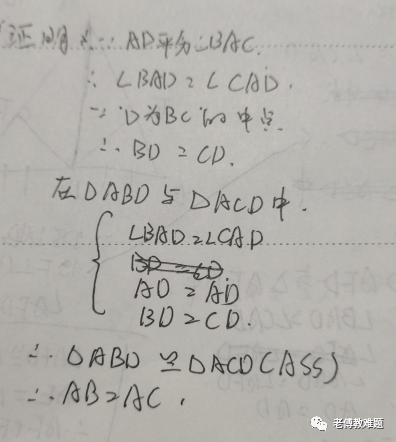 证明：∵AD平分∠BAC.
∴∠BAD=∠CAD.
∵D为BC的中点.
∴BD=CD.
在△ABD与△ACD中.
∠BAD=∠CAD
BD=CD
AD=AD
BD=CD.
∴△ABD≌△ACD(ASS)
∴AB=AC.
老傅教难题